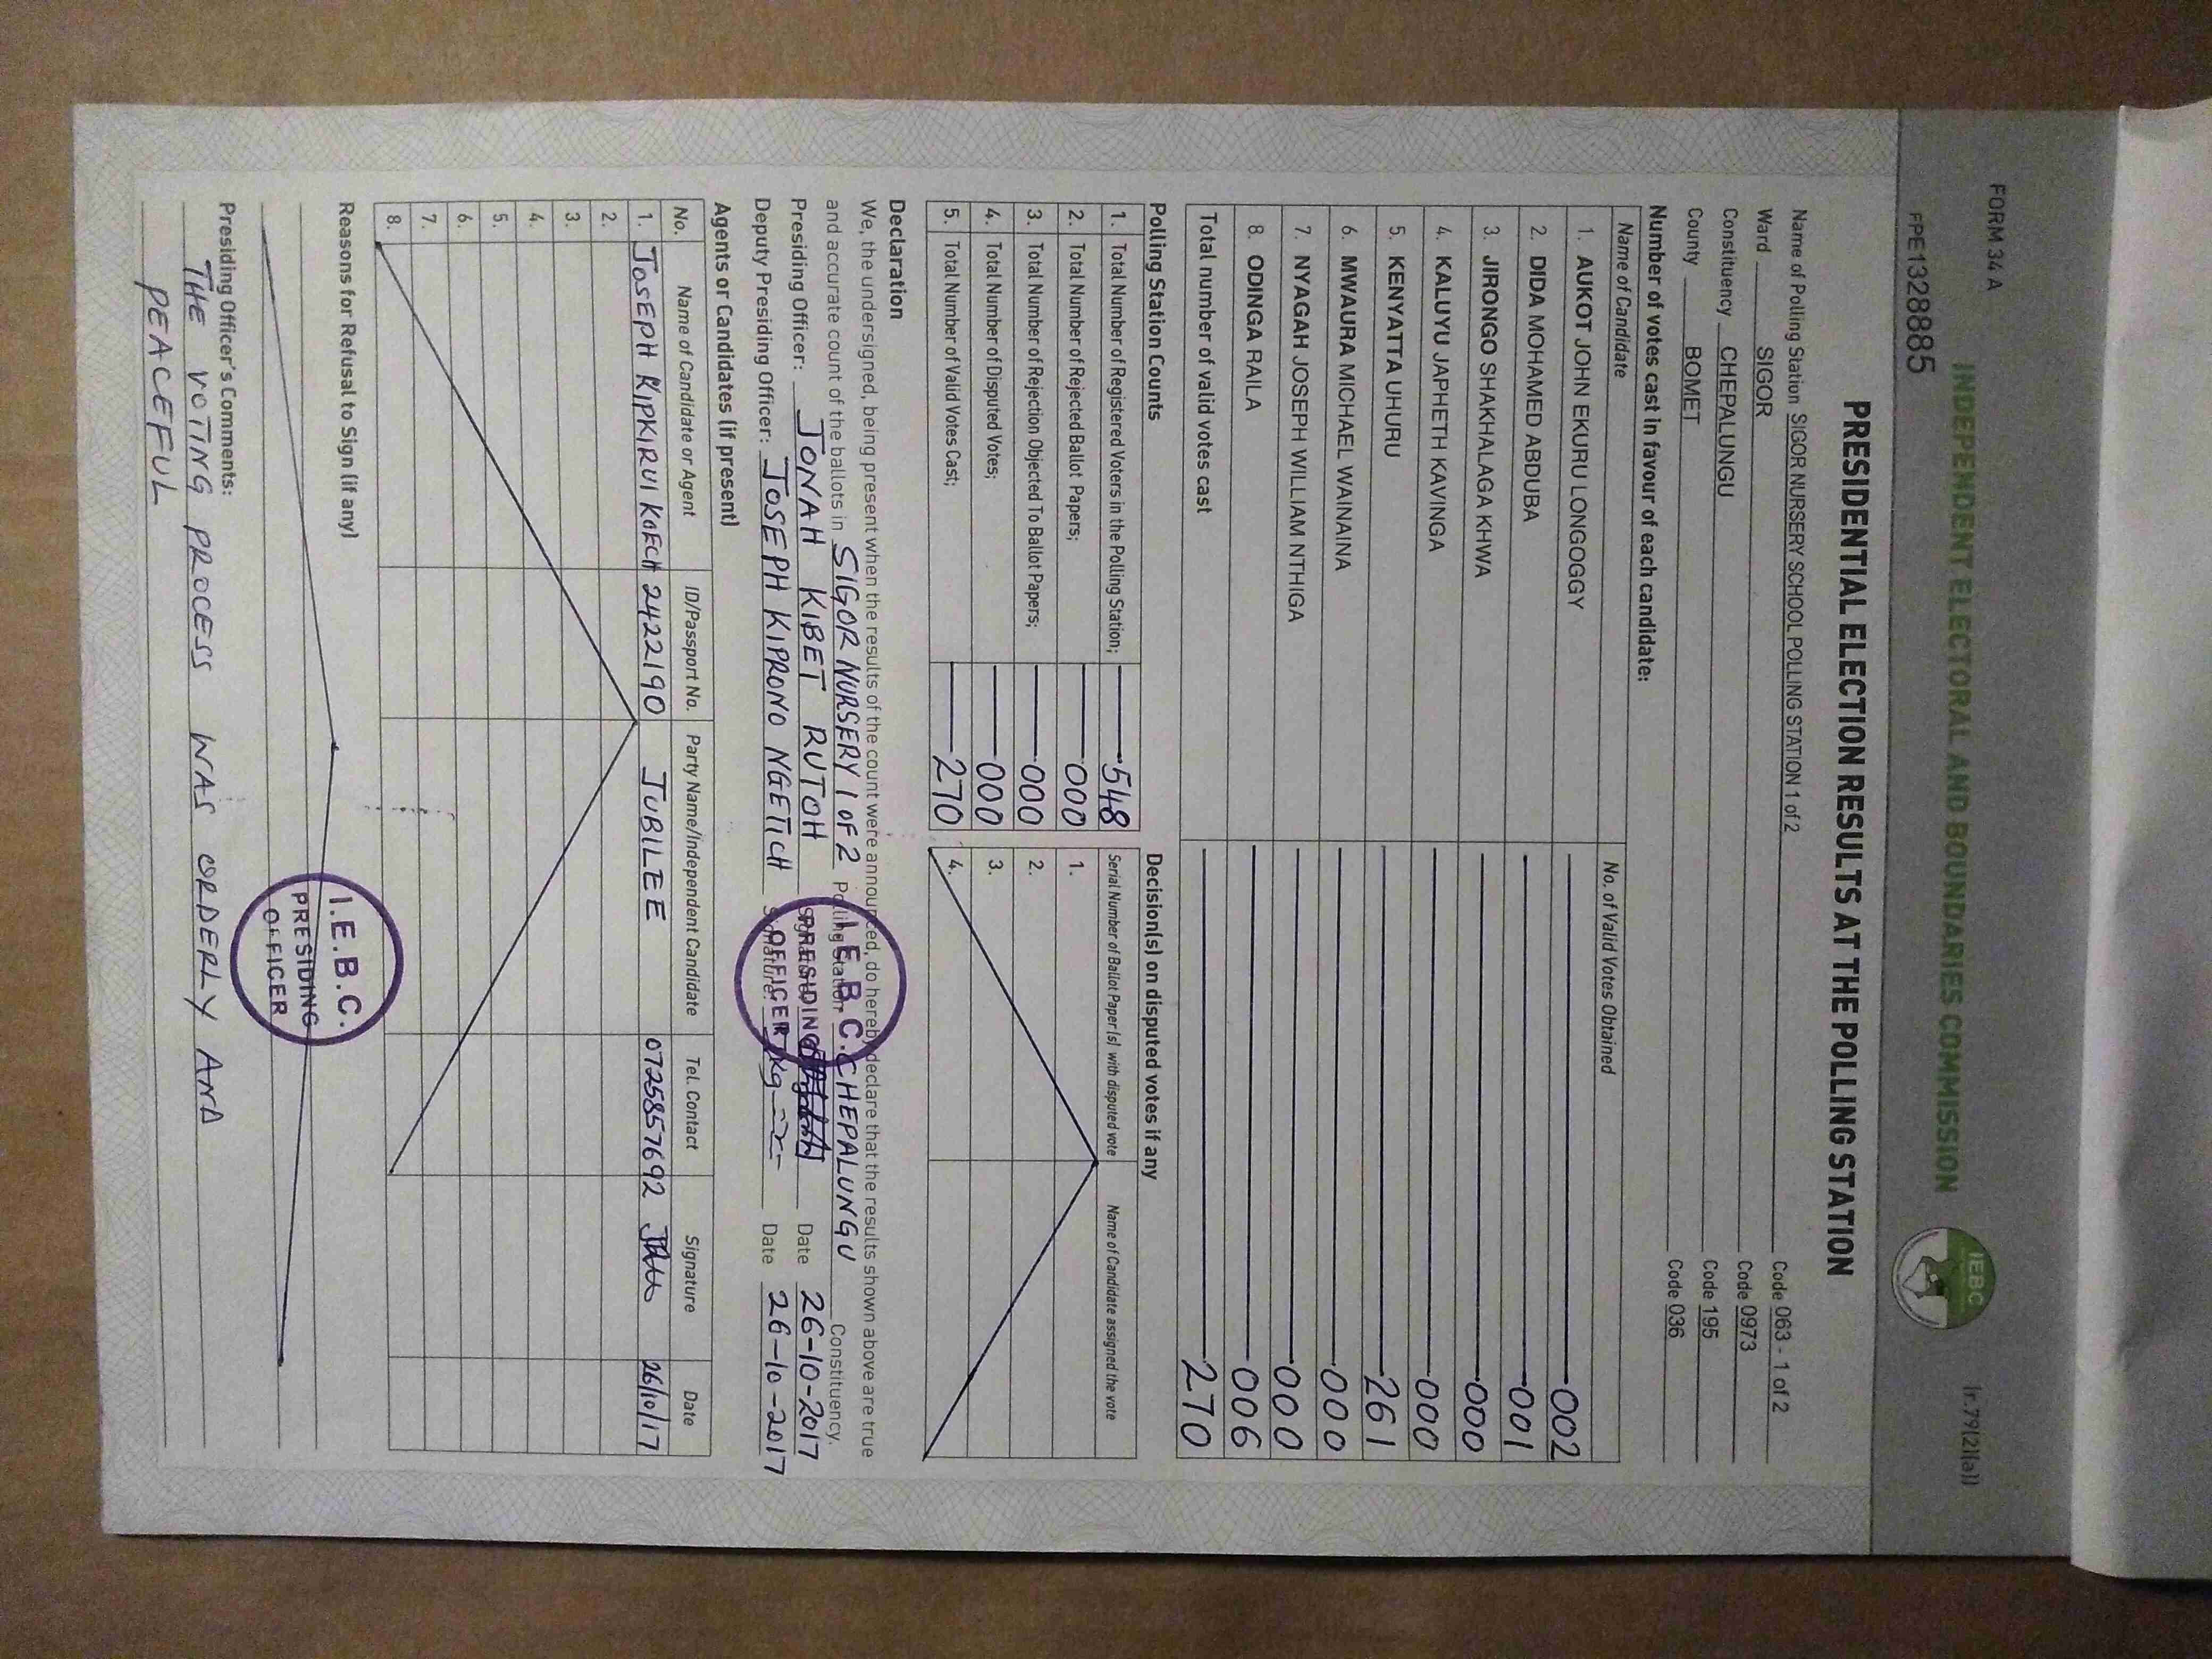 FORM 34 A
(r.79(2)(a))
FPE1328885
INDEPENDENT ELECTORAL AND BOUNDARIES COMMISSION
IEBC
PRESIDENTIAL ELECTION RESULTS AT THE POLLING STATION
Name of Polling Station SIGOR NURSERY SCHOOL POLLING STATION 1 of 2 Code 063 - 1 of 2
Ward SIGOR Code 0973
Constituency CHEPALUNGU Code 195
County BOMET Code 036
Number of votes cast in favour of each candidate:
Name of Candidate No. of Valid Votes Obtained
1. AUKOT JOHN EKURU LONGOGGY 002
2. DIDA MOHAMED ABDUBA 001
3. JIRONGO SHAKHALAGA KHWA 000
4. KALUYU JAPHETH KAVINGA 000
5. KENYATTA UHURU 261
6. MWAURA MICHAEL WAINAINA 000
7. NYAGAH JOSEPH WILLIAM NTHIGA 000
8. ODINGA RAILA 006
Total number of valid votes cast 270
Polling Station Counts
1. Total Number of Registered Voters in the Polling Station; 548
2. Total Number of Rejected Ballot Papers; 000
3. Total Number of Rejection Objected To Ballot Papers; 000
4. Total Number of Disputed Votes; 000
5. Total Number of Valid Votes Cast; 270
Decision(s) on disputed votes if any
Serial Number of Ballot Paper(s) with disputed vote Name of Candidate assigned the vote
1.
2.
3.
4.
Declaration
We, the undersigned, being present when the results of the count were announced, do hereby declare that the results shown above are true
and accurate count of the ballots in SIGOR NURSERY 1 OF 2 Polling Station CHEPALUNGU Constituency.
Presiding Officer: JONAH KIBET RUTOH Signature: Date 26-10-2017
Deputy Presiding Officer: JOSEPH KIPRONO NGETICH Signature: Date 26-10-2017
I.E.B.C.
PRESIDING
OFFICER
Agents or Candidates (if present)
No. Name of Candidate or Agent ID/Passport No. Party Name/Independent Candidate Tel. Contact Signature Date
1. JOSEPH KIPKIRUI KOECH 24221190 JUBILEE 0725857692 26/10/17
2.
3.
4.
5.
6.
7.
8.
Reasons for Refusal to Sign (if any)
I.E.B.C.
PRESIDING
OFFICER
Presiding Officer's Comments:
THE VOTING PROCESS WAS ORDERLY AND
PEACEFUL